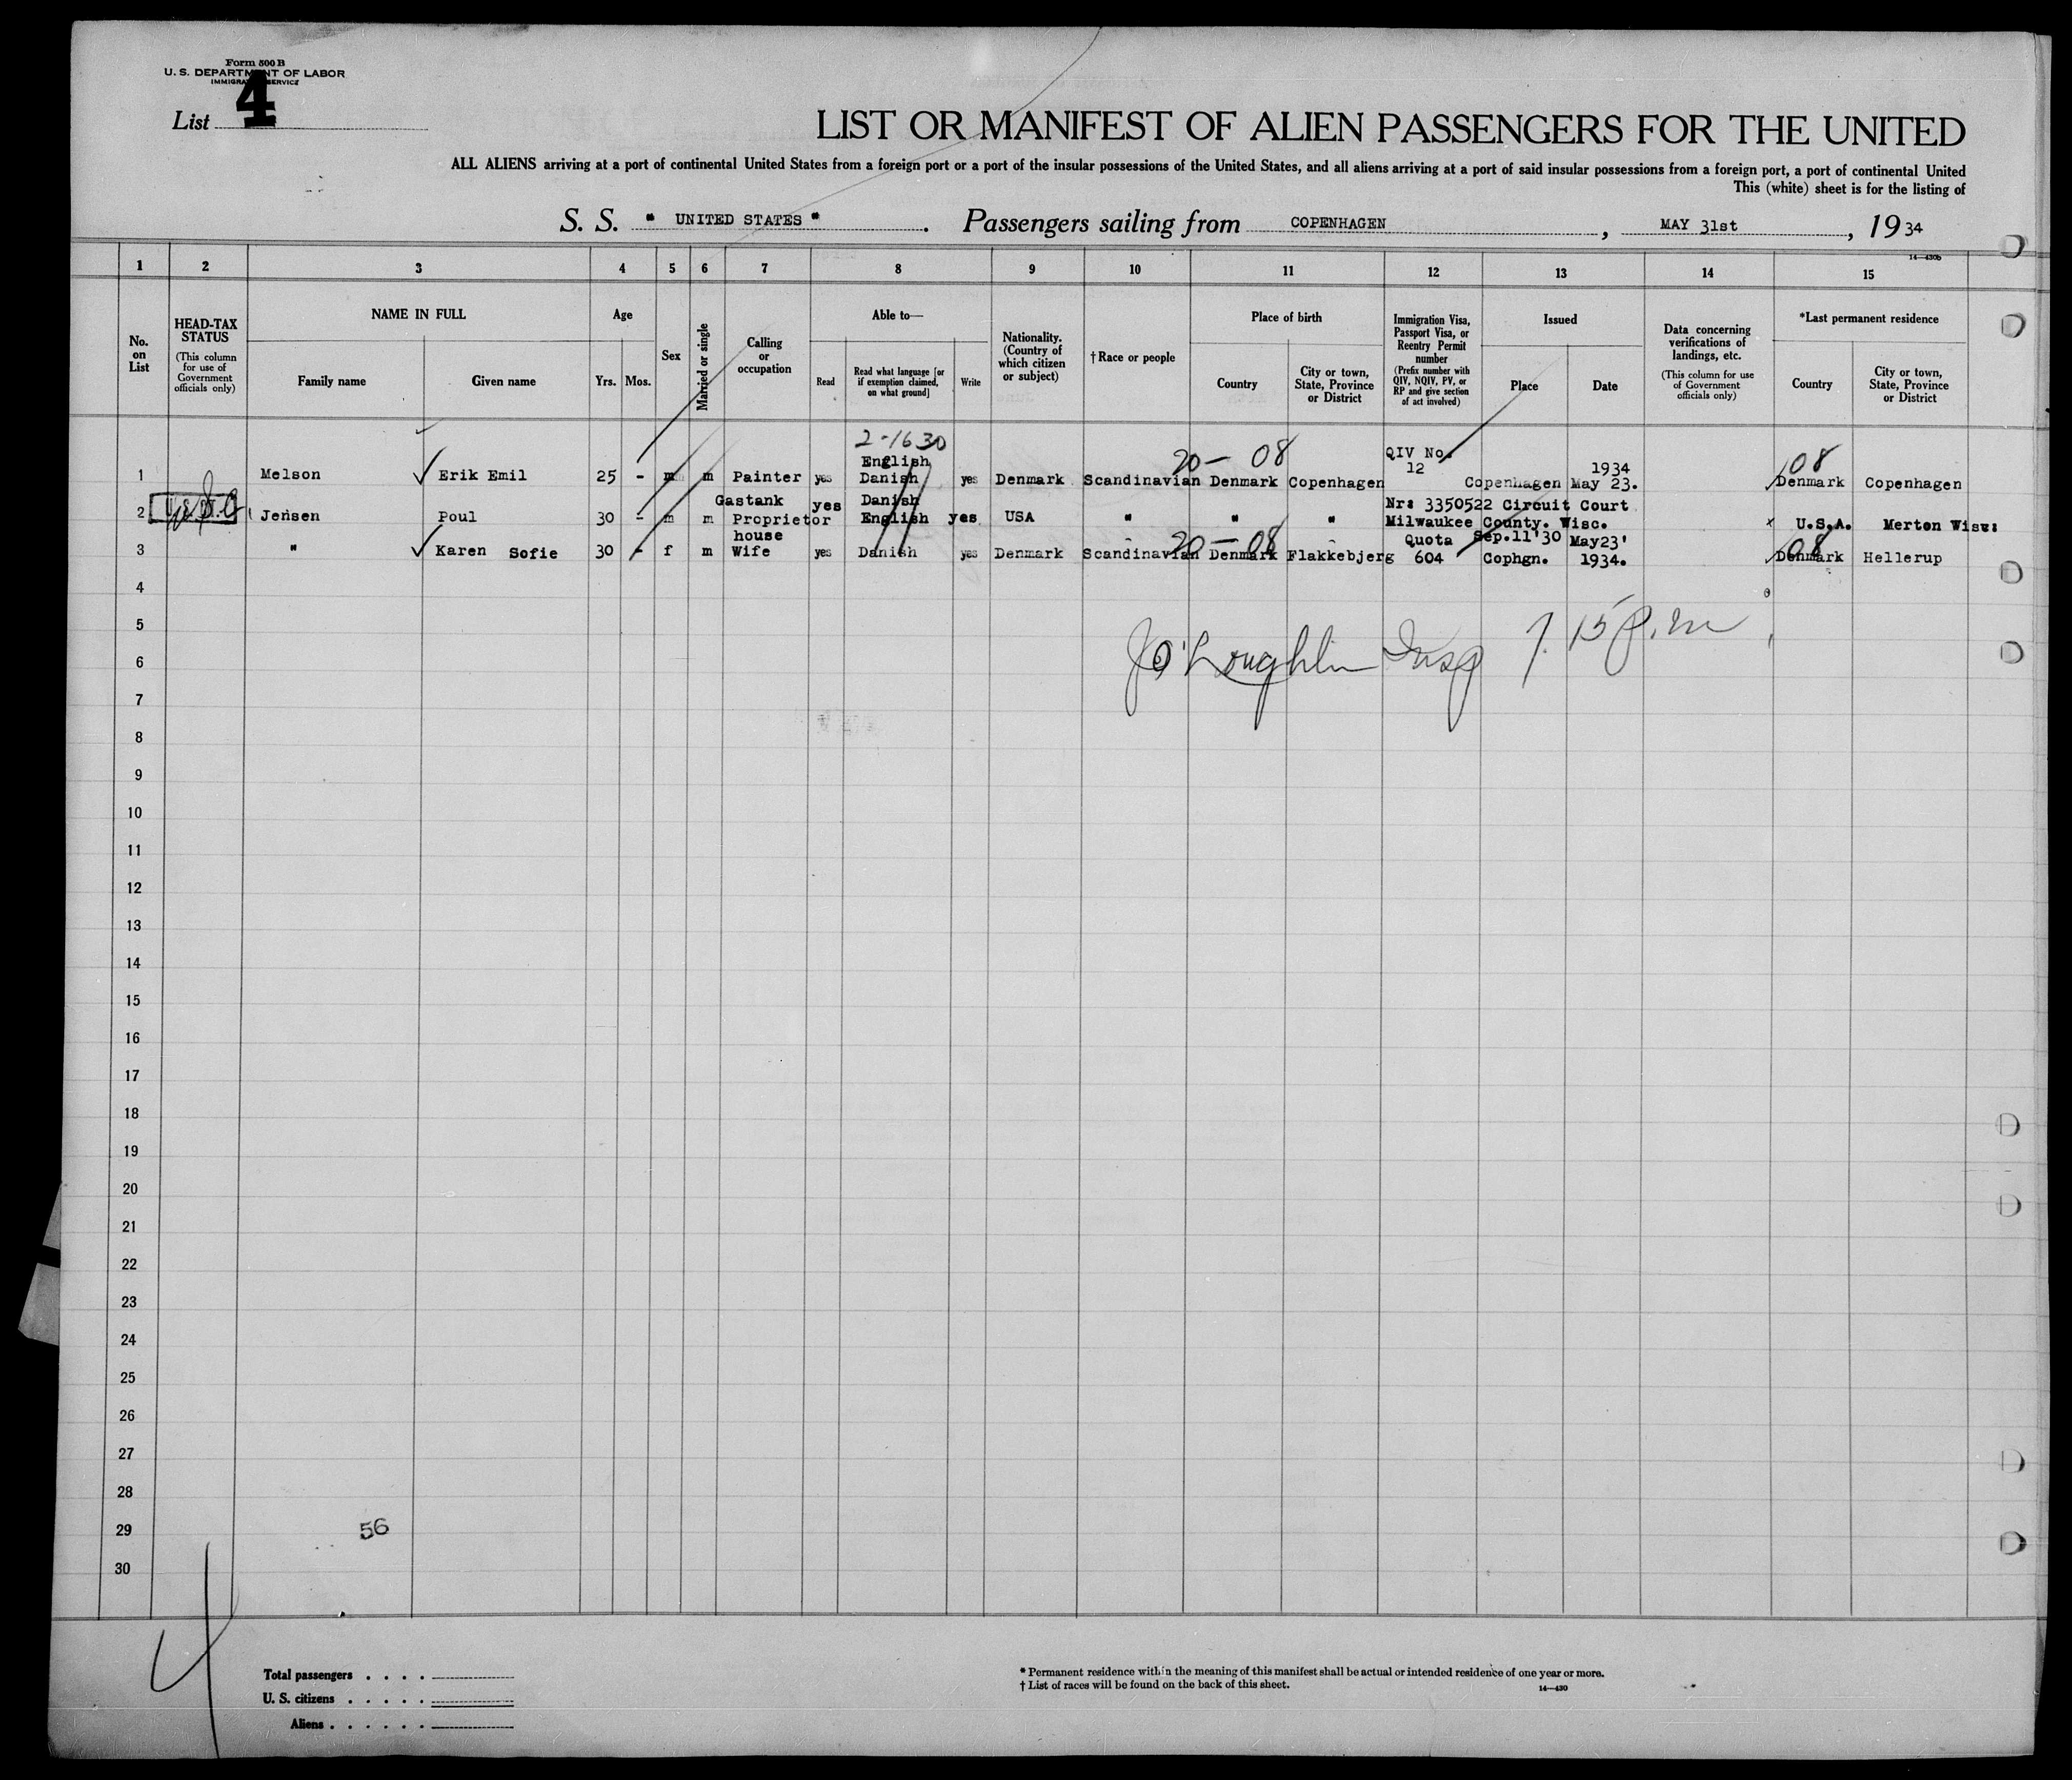 Form 500 B
U. S. DEPARTMENT OF LABOR
IMMIGRATION SERVICE
List 4
LIST OR MANIFEST OF ALIEN PASSENGERS FOR THE UNITED
ALL ALIENS arriving at a port of continental United States from a foreign port or a port of the insular possessions of the United States, and all aliens arriving at a port of said insular possessions from a foreign port, a port of continental United
This (white) sheet is for the listing of
S. S. " UNITED STATES " . Passengers sailing from COPENHAGEN , MAY 31st , 19 34
14—430b
1 2 3 4 5 6 7 8 9 10 11 12 13 14 15
No. on List
HEAD-TAX STATUS
(This column for use of Government officials only)
NAME IN FULL
Family name Given name
Age
Yrs. Mos.
Sex
Married or single
Calling or occupation
Able to—
Read
Read what language [or if exemption claimed, on what ground]
Write
Nationality. (Country of which citizen or subject)
† Race or people
Place of birth
Country
City or town, State, Province or District
Immigration Visa, Passport Visa, or Reentry Permit number
(Prefix number with QIV, NQIV, PV, or RP and give section of act involved)
Issued
Place Date
Data concerning verifications of landings, etc.
(This column for use of Government officials only)
*Last permanent residence
Country
City or town, State, Province or District
2-1630
English 20- 08 QIV No. 1934 08
1 Melson Erik Emil 25 - m m Painter yes Danish yes Denmark Scandinavian Denmark Copenhagen 12 Copenhagen May 23. Denmark Copenhagen
Gastank yes Danish Nr: 3350522 Circuit Court
2 Jensen Poul 30 - m m Proprietor English yes USA " " " Milwaukee County. Wisc. x U.S.A. Merton Wisc:
house 20- 08 Quota Sep.11'30 May23' 08
3 " Karen Sofie 30 - f m Wife yes Danish yes Denmark Scandinavian Denmark Flakkebjerg 604 Cophgn. 1934. Denmark Hellerup
4
5
JO'Loughlin Insp 7.15 p.m
6
7
8
9
10
11
12
13
14
15
16
17
18
19
20
21
22
23
24
25
26
27
28
29 56
30
4
Total passengers . . . .
U. S. citizens . . . . .
Aliens . . . . . .
* Permanent residence within the meaning of this manifest shall be actual or intended residence of one year or more.
† List of races will be found on the back of this sheet.
14—430